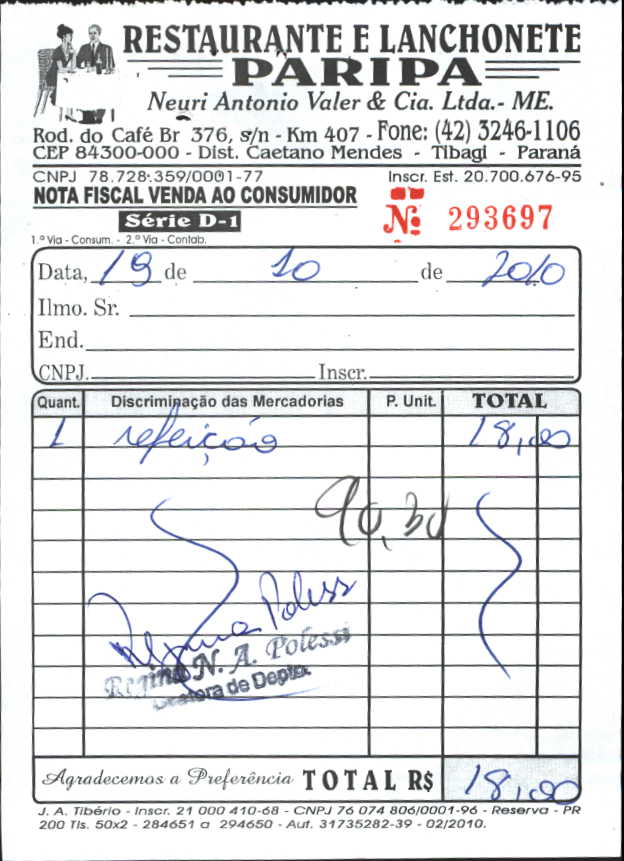 RESTAURANTE E LANCHONETE
PARIPA
Neuri Antonio Valer & Cia. Ltda.- ME.
Rod. do Café Br 376, s/n - Km 407 - Fone: (42) 3246-1106
CEP 84300-000 - Dist. Caetano Mendes - Tibagi - Paraná
CNPJ 78.728.359/0001-77 Inscr. Est. 20.700.676-95
NOTA FISCAL VENDA AO CONSUMIDOR
Série D-1
Nº 293697
1.ª Via - Consum. - 2.ª Via - Contab.
Data, 19 de 10 de 2010
Ilmo. Sr.
End.
CNPJ. Inscr.
Quant. Discriminação das Mercadorias P. Unit. TOTAL
1 refeição 18,00
90,30
Regina Poless
Regina N. A. Polessi
de Depto.
Agradecemos a Preferência TOTAL R$ 18,00
J. A. Tibério - Inscr. 21 000 410-68 - CNPJ 76 074 806/0001-96 - Reserva - PR
200 Tls. 50x2 - 284651 a 294650 - Aut. 31735282-39 - 02/2010.